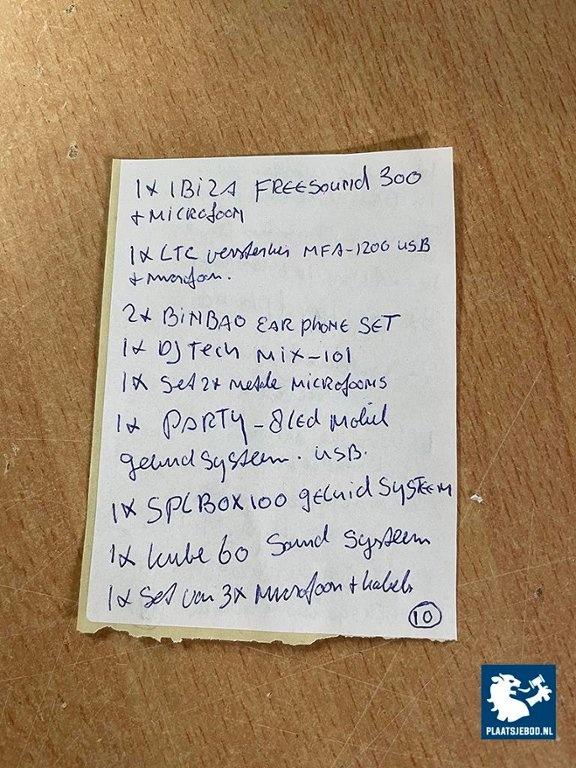 1x IBIZA FREESOUND 300
+ MICROFOON
1x LTC versterker MFA-1200 USB
+ microfoon.
2x BINBAO EAR PHONE SET
1x DJ Tech MIX-101
1x Set 2x metale MICROFOONS
1x PARTY-8Led Mobiel
geluidsysteem. USB.
1x SPLBOX100 geluid SYSTEEM
1x kube 60 Sound Systeem
1x Set van 3x Microfoon + kabels
10
PLAATSJEBOD.NL